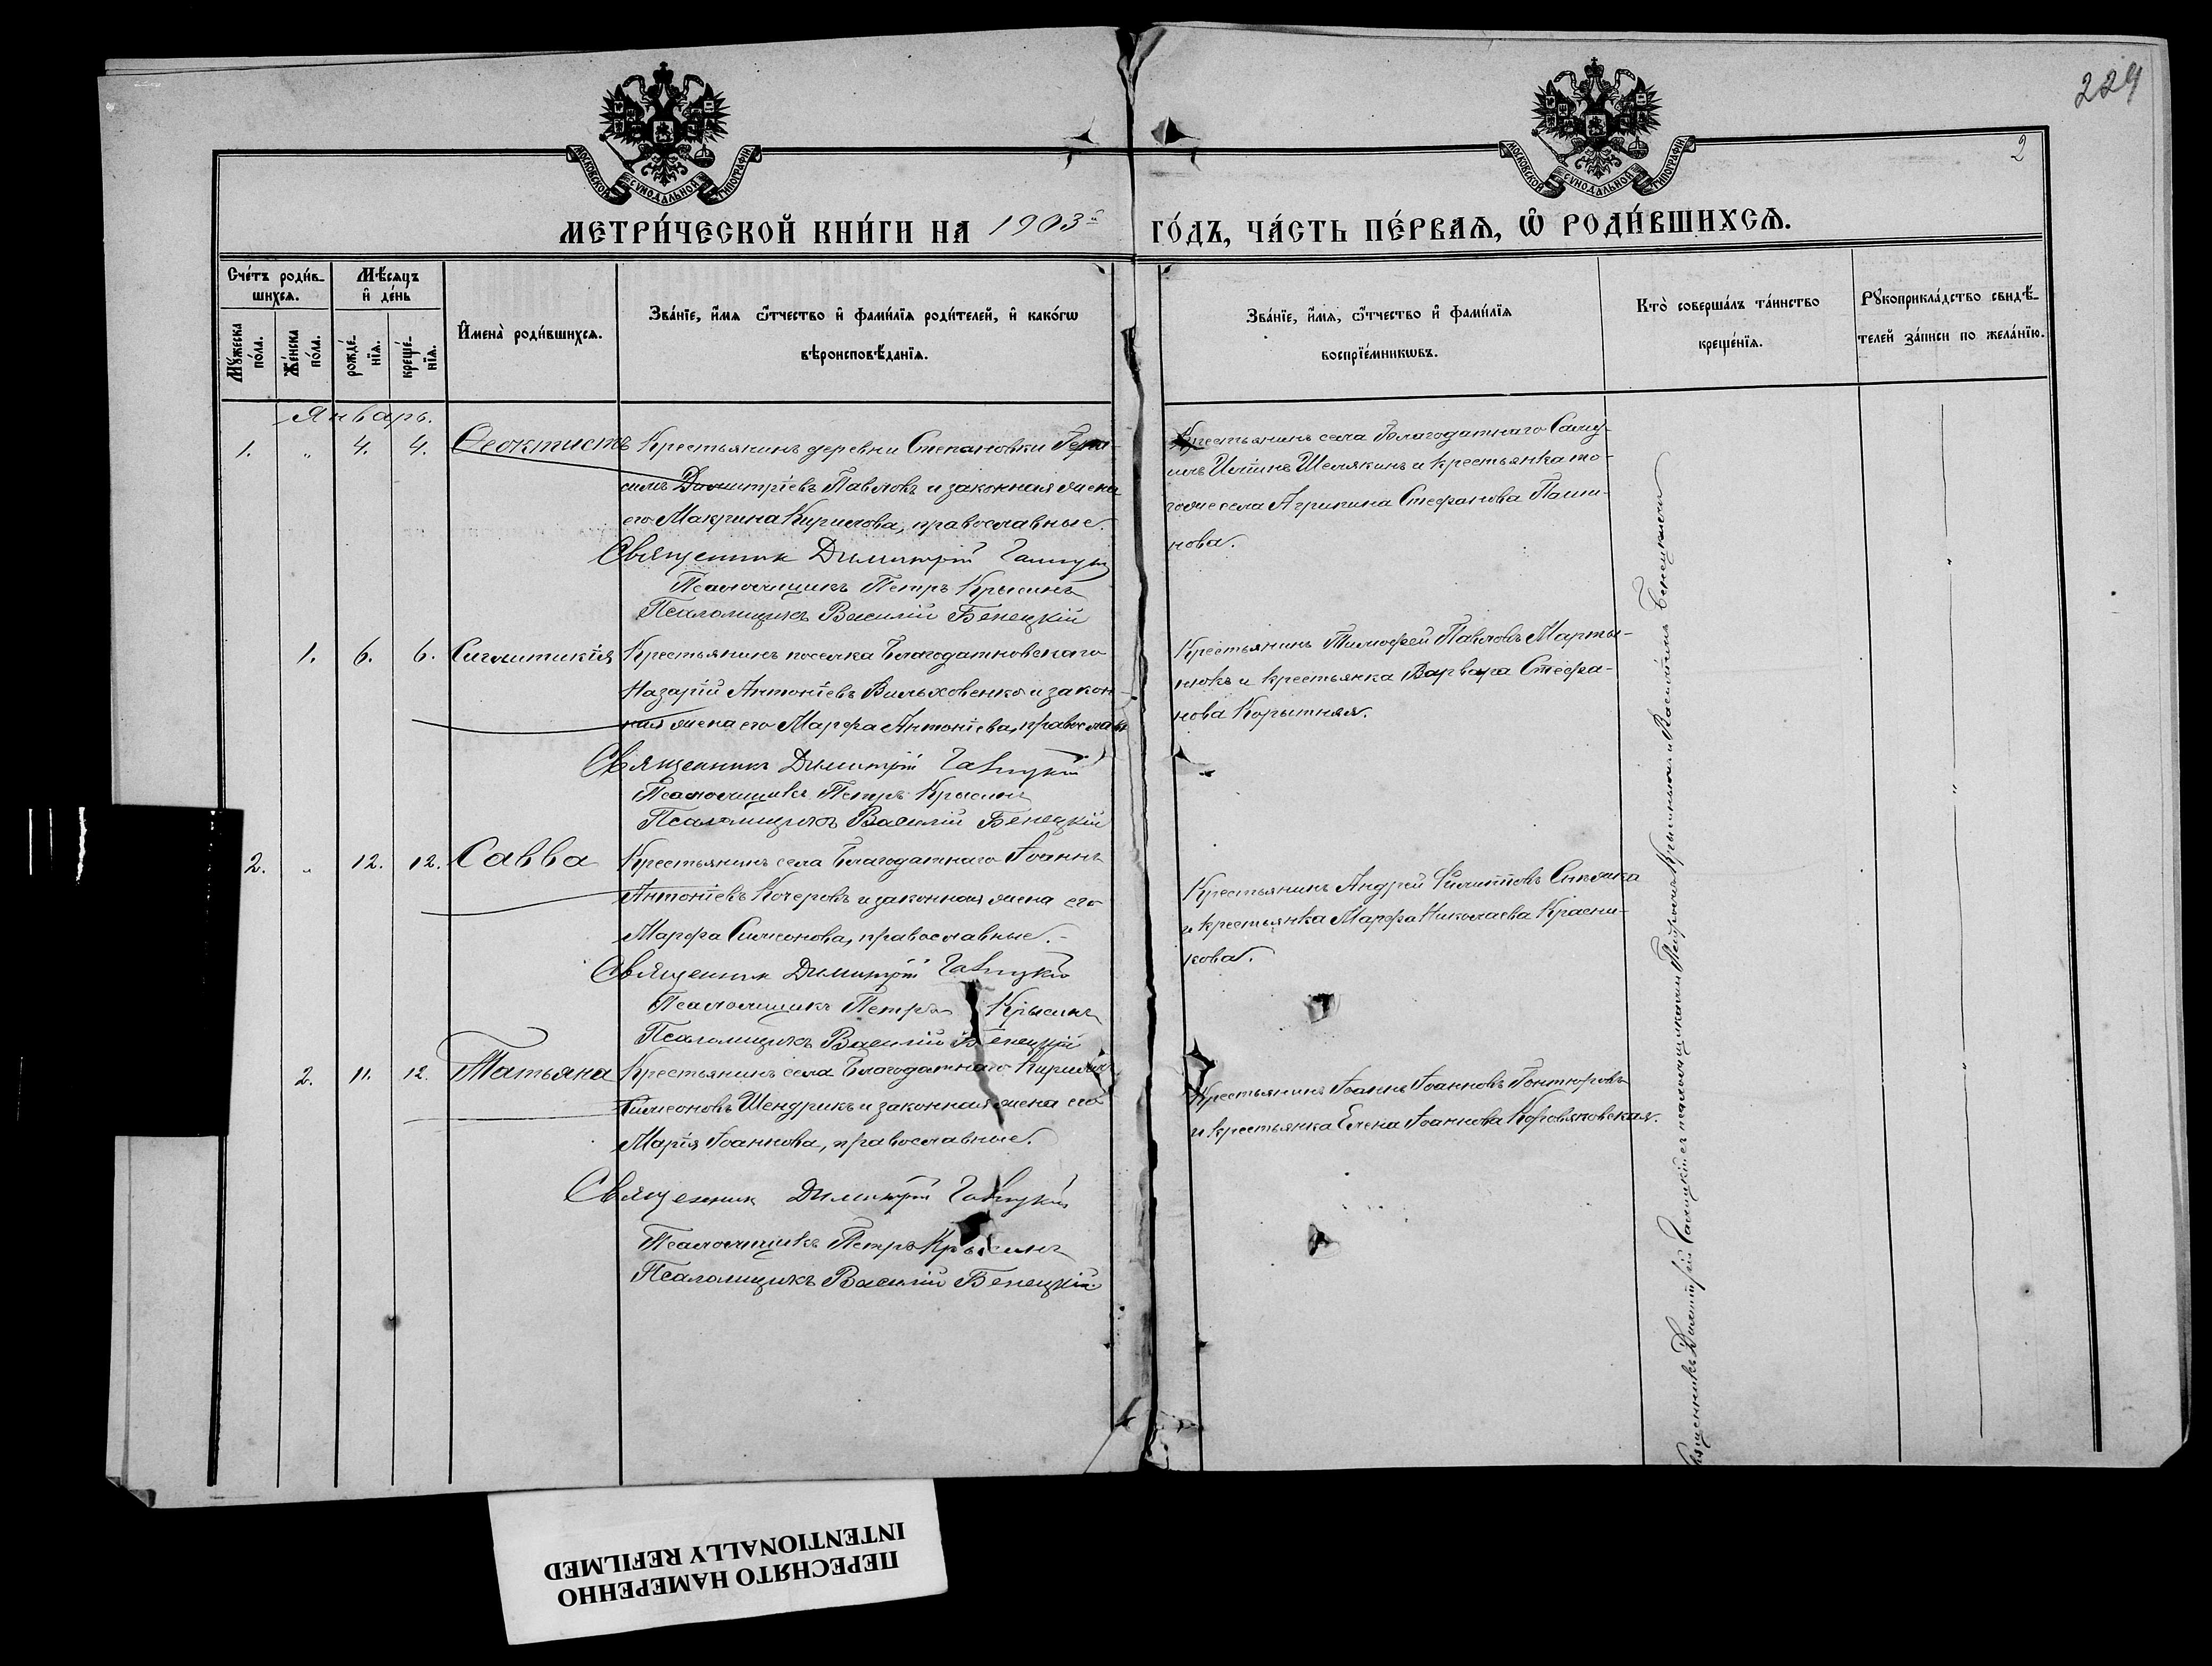 229
2
МОСКОВСКОЙ СѴНОДАЛЬНОЙ ТИПОГРАФІИ
МОСКОВСКОЙ СѴНОДАЛЬНОЙ ТИПОГРАФІИ
МЕТРИ́ЧЕСКОЙ КНИ́ГИ НА 1903й ГО́ДЪ, ЧА́СТЬ ПЕ́РВАЯ, Ѡ҆ РОДИ́ВШИХСЯ.
Сче́тъ роди́в-
шихся.
Мꙋ́жеска по́ла.
Же́нска по́ла.
Мѣ́сяцъ
и҆ де́нь
рожде́-
нїя.
креще́-
нїя.
И҆мена̀ роди́вшихся.
Зва́нїе, и҆́мя ѻ҆́тчество и҆ фами́лїя роди́телей, и҆ како́гѡ
вѣроисповѣ́данїя.
Зва́нїе, и҆́мя, ѻ҆́тчество и҆ фами́лїя
воспрїе́мникѡвъ.
Кто̀ соверша́лъ та́инство
креще́нїя.
Рꙋкоприкла́дство свидѣ́-
телей за́писи по жела́нїю.
Январь.
1. " 4. 4. Ѳеоктистъ Крестьянинъ деревни Степановки Гера-
симъ Димитріевъ Павловъ и законная жена
его Макрина Кирилова, православные.
Священник Димитрий
Псаломщикъ Петръ Крысинъ
Псаломщикъ Василій Бенецкій
Крестьянинъ села Благодатнаго Саму-
илъ Иліинъ Шелякинъ и крестьянка то-
гоже села Агрипина Стефанова Паши-
нова.
1. 6. 6. Сиглитикія Крестьянинъ поселка Благодатновскаго
Назарій Антоніевъ Вильховенко и закон-
ная жена его Марфа Антоніева, православн
Священникъ Димитрій
Псаломщикъ Петръ Крысинъ
Псаломщикъ Василій Бенецкій
Крестьянинъ Тимофей Павловъ Марты-
нюкъ и крестьянка Варвара Стефа-
нова Корытняя.
2. " 12. 12. Савва Крестьянинъ села Благодатнаго Іоаннъ
Антоніевъ Кочеровъ и законная жена его
Марфа Симеонова, православные.
Священник Димитрій
Псаломщикъ Петръ Крысинъ
Псаломщикъ Василій Бенецкій
Крестьянинъ Андрей Филипповъ
и крестьянка Марфа Николаева Красни-
кова.
2. 11. 12. Татьяна Крестьянинъ села Благодатнаго Кириллъ
Симеоновъ Шендрикъ и законная жена его
Марія Іоаннова, православные.
Священник Димитрій
Псаломщикъ Петръ Крысинъ
Псаломщикъ Василій Бенецкій
Крестьянинъ Іоаннъ Іоанновъ
и крестьянка Елена Іоаннова
Священникъ Димитрій съ псаломщиками Петромъ Крысинымъ и Василіемъ Бенецкимъ
ПЕРЕСНЯТО НАМЕРЕННО
INTENTIONALLY REFILMED